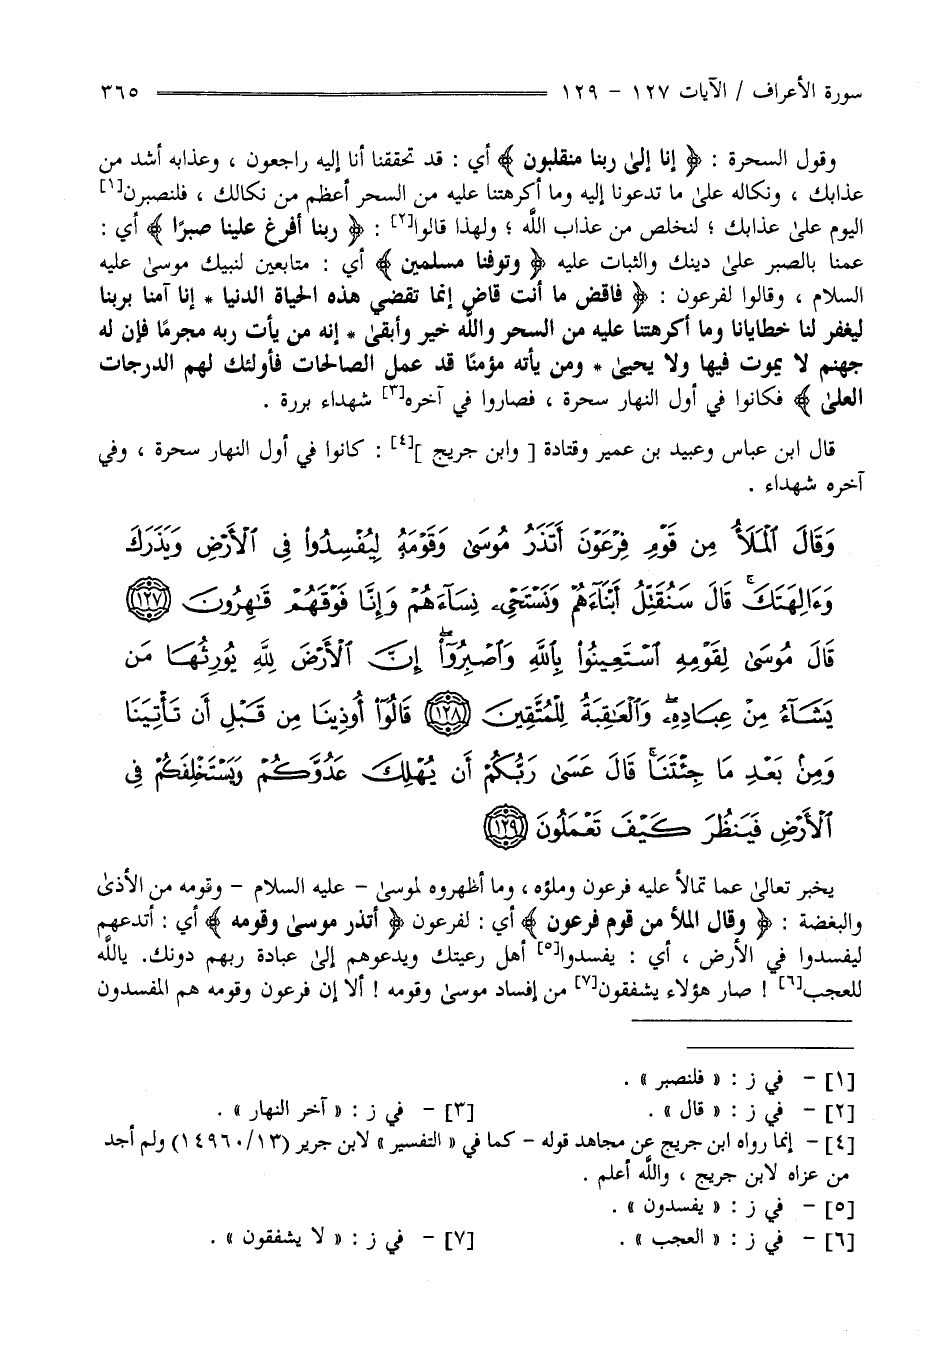 سورة الأعراف / الآيات ١٢٧ - ١٢٩ ٣٦٥
وقول السحرة : ﴿ إنا إلىٰ ربنا منقلبون ﴾ أي : قد تحققنا أنا إليه راجعون ، وعذابه أشد من
عذابك ، ونكاله علىٰ ما تدعونا إليه وما أكرهتنا عليه من السحر أعظم من نكالك ، فلنصبرن[١]
اليوم علىٰ عذابك ؛ لنخلص من عذاب اللَّه ؛ ولهذا قالوا[٢] : ﴿ ربنا أفرغ علينا صبرًا ﴾ أي :
عمنا بالصبر علىٰ دينك والثبات عليه ﴿ وتوفنا مسلمين ﴾ أي : متابعين لنبيك موسىٰ عليه
السلام ، وقالوا لفرعون : ﴿ فاقض ما أنت قاض إنما تقضي هذه الحياة الدنيا * إنا آمنا بربنا
ليغفر لنا خطايانا وما أكرهتنا عليه من السحر واللَّه خير وأبقىٰ * إنه من يأت ربه مجرمًا فإن له
جهنم لا يموت فيها ولا يحيىٰ * ومن يأته مؤمنًا قد عمل الصالحات فأولئك لهم الدرجات
العلىٰ ﴾ فكانوا في أول النهار سحرة ، فصاروا في آخره[٣] شهداء بررة .
قال ابن عباس وعبيد بن عمير وقتادة [ وابن جريج ][٤] : كانوا في أول النهار سحرة ، وفي
آخره شهداء .
وَقَالَ ٱلْمَلَأُ مِن قَوْمِ فِرْعَوْنَ أَتَذَرُ مُوسَىٰ وَقَوْمَهُۥ لِيُفْسِدُوا۟ فِى ٱلْأَرْضِ وَيَذَرَكَ
وَءَالِهَتَكَ ۚ قَالَ سَنُقَتِّلُ أَبْنَآءَهُمْ وَنَسْتَحْىِۦ نِسَآءَهُمْ وَإِنَّا فَوْقَهُمْ قَٰهِرُونَ ١٢٧
قَالَ مُوسَىٰ لِقَوْمِهِ ٱسْتَعِينُوا۟ بِٱللَّهِ وَٱصْبِرُوٓا۟ ۖ إِنَّ ٱلْأَرْضَ لِلَّهِ يُورِثُهَا مَن
يَشَآءُ مِنْ عِبَادِهِۦ ۖ وَٱلْعَٰقِبَةُ لِلْمُتَّقِينَ ١٢٨ قَالُوٓا۟ أُوذِينَا مِن قَبْلِ أَن تَأْتِيَنَا
وَمِنۢ بَعْدِ مَا جِئْتَنَا ۚ قَالَ عَسَىٰ رَبُّكُمْ أَن يُهْلِكَ عَدُوَّكُمْ وَيَسْتَخْلِفَكُمْ فِى
ٱلْأَرْضِ فَيَنظُرَ كَيْفَ تَعْمَلُونَ ١٢٩
يخبر تعالىٰ عما تمالأ عليه فرعون وملؤه ، وما أظهروه لموسىٰ - عليه السلام - وقومه من الأذىٰ
والبغضة : ﴿ وقال الملأ من قوم فرعون ﴾ أي : لفرعون ﴿ أتذر موسىٰ وقومه ﴾ أي : أتدعهم
ليفسدوا في الأرض ، أي : يفسدوا[٥] أهل رعيتك ويدعوهم إلىٰ عبادة ربهم دونك. ياللَّه
للعجب[٦] ! صار هؤلاء يشفقون[٧] من إفساد موسىٰ وقومه ! ألا إن فرعون وقومه هم المفسدون
[١] - في ز : « فلنصبر » .
[٢] - في ز : « قال » . [٣] - في ز : « آخر النهار » .
[٤] - إنما رواه ابن جريج عن مجاهد قوله - كما في « التفسير » لابن جرير (١٤٩٦٠/١٣) ولم أجد
من عزاه لابن جريج ، واللَّه أعلم .
[٥] - في ز : « يفسدون » .
[٦] - في ز : « العجب » . [٧] - في ز : « لا يشفقون » .